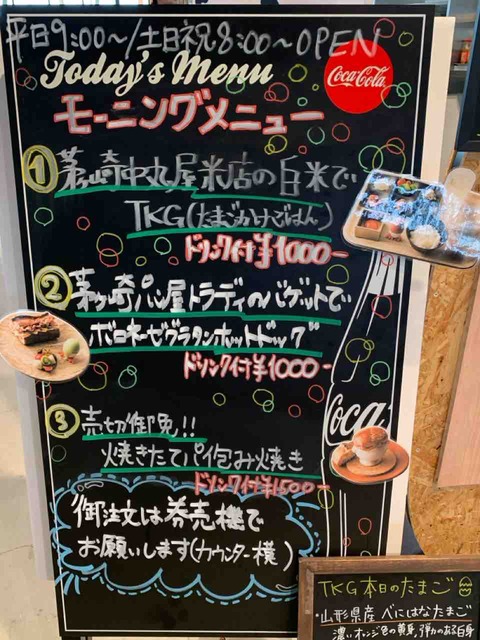 平日9:00〜/土日祝8:00〜OPEN
Today's Menu
Coca-Cola
モーニングメニュー
① 茅ヶ崎中丸屋米店の白米で
TKG(たまごかけごはん)
ドリンク付¥1000-
② 茅ヶ崎パン屋トラディのバゲットで
ボロネーゼグラタンホットドッグ
ドリンク付¥1000-
③ 売切御免!!
焼きたてパイ包み焼き
ドリンク付¥1500-
Coca
御注文は券売機で
お願いします(カウンター横)
TKG本日のたまご
・山形県産 べにはなたまご
濃いオレンジ色の黄身、弾力のある白身